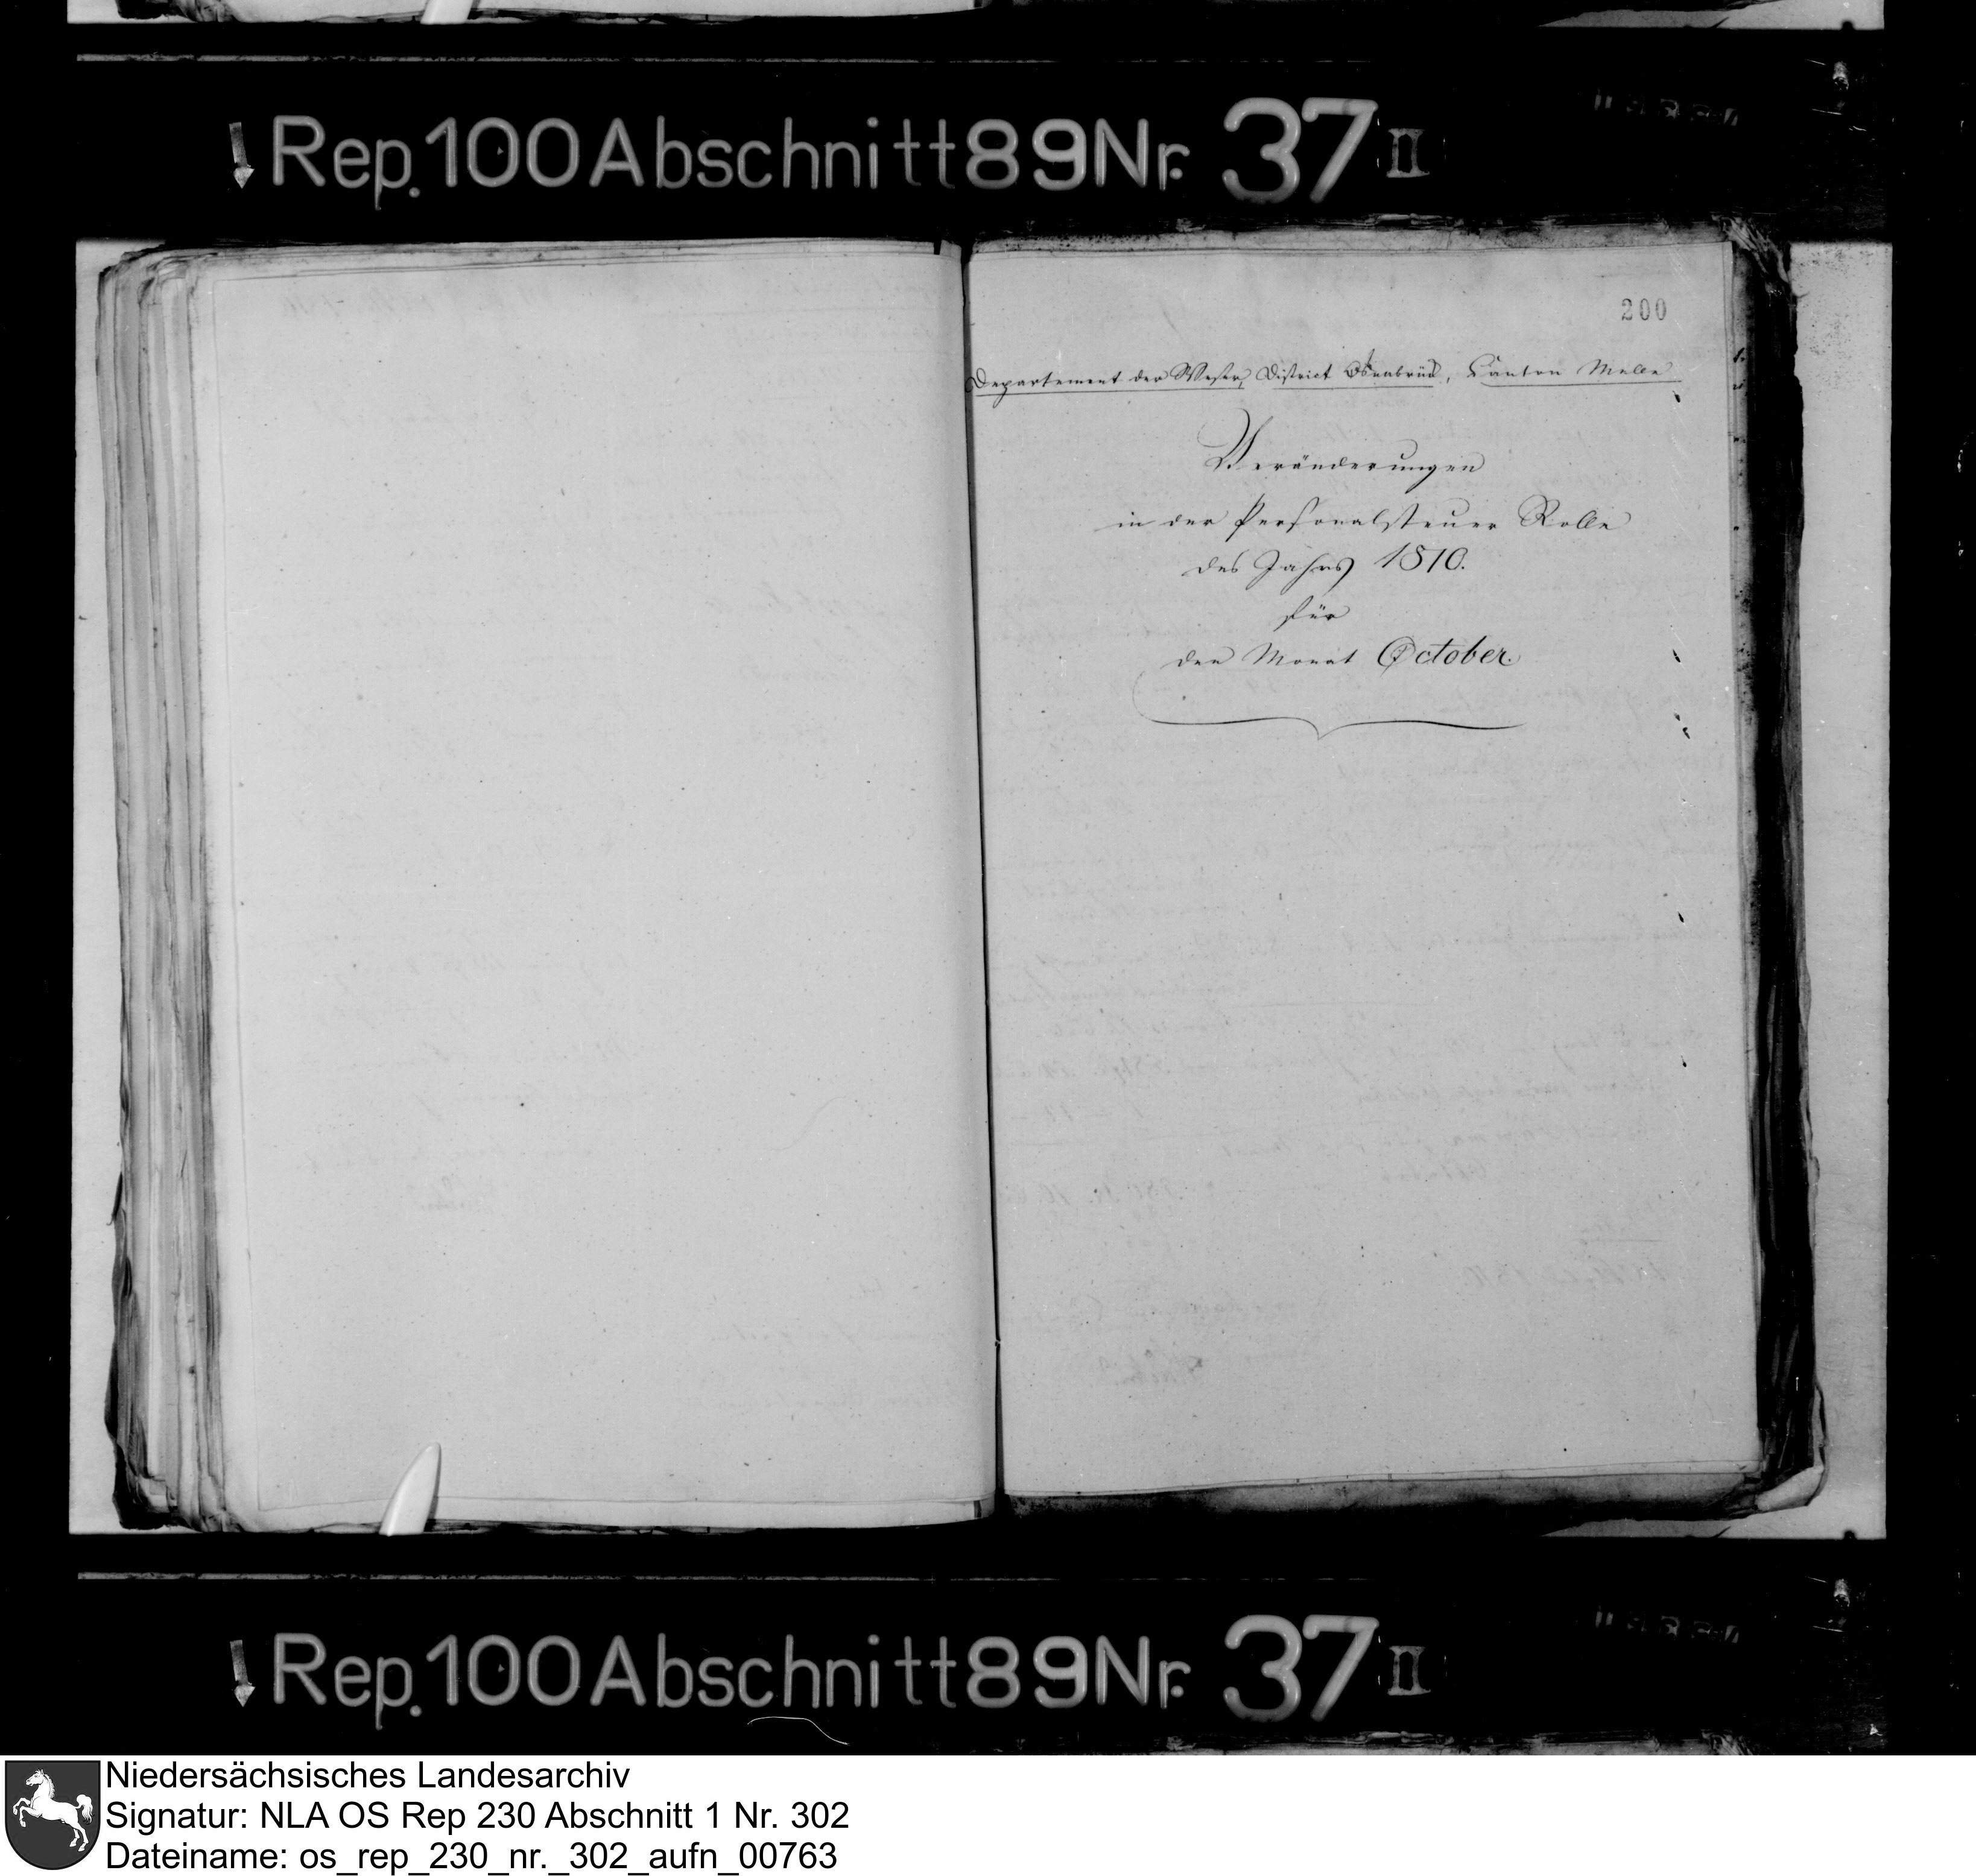 Rep. 100 Abschnitt 89 Nr. 37 II
200
Departement der Weser, District Osnabrück, Canton Melle
Veränderungen
in der Personalsteuer Rolle
des Jahrs 1810.
für
den Monat October.
Rep. 100 Abschnitt 89 Nr. 37 II
Niedersächsisches Landesarchiv
Signatur: NLA OS Rep 230 Abschnitt 1 Nr. 302
Dateiname: os_rep_230_nr._302_aufn_00763